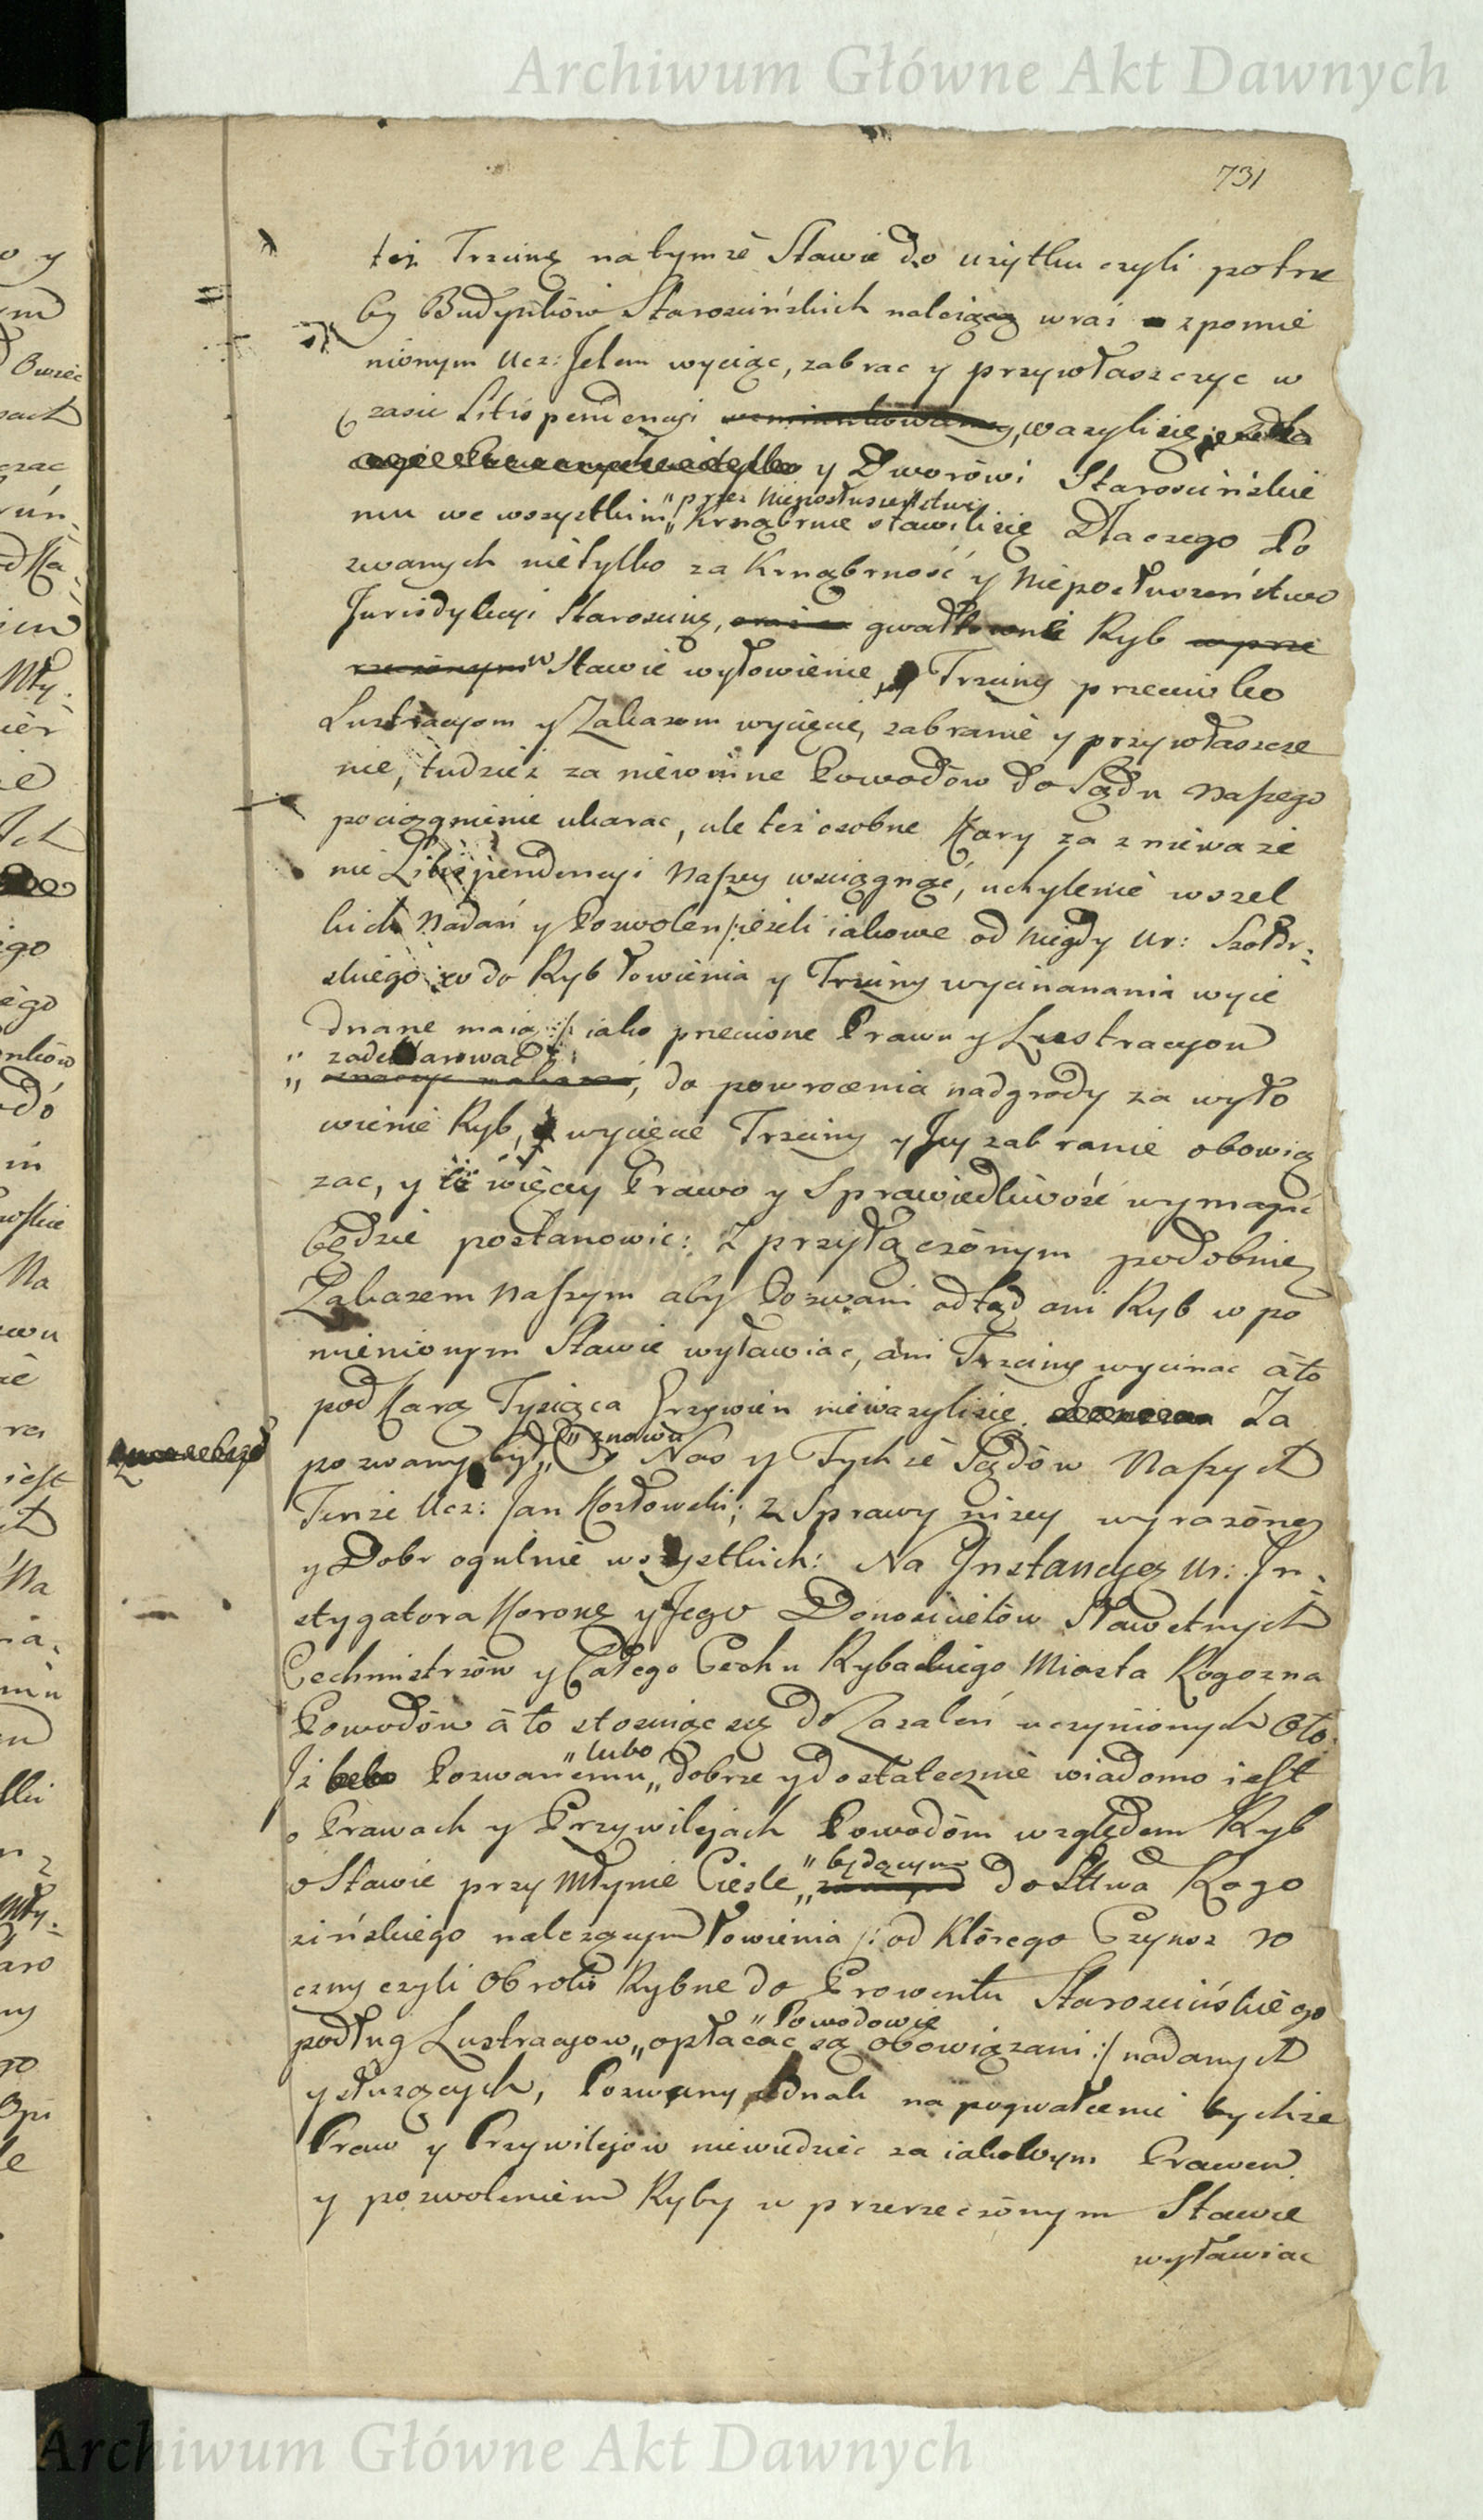 Archiwum Główne Akt Dawnych
731
też Trzcinę na tymże Stawie do użytku czyli potrze
by Budynków Starościńskich należącą wraz z pomie
nionym Ucz: Jelem wyciąc, zabrac y przywłaszczyc w
czasie Litis pendencyi ważyli się
y Dworowi Starościńskie
mu we wszystkim „przez Nieposłuszeństwo
„Krnąbrnie stawili się Dlaczego Po
zwanych nietylko za Krnąbrność y Nieposłuszeństwo
Jurisdykcyi Starościny, gwałtowne Ryb w prze
rzeczonym w Stawie wyłowienie, y Trzciny przeciwko
Lustracyom y Zakazom wycięcie, zabranie y przywłaszcze
nie, tudzież za niewinne Powodow do Sądu Naszego
pociągnienie ukarac, ale też osobne Kary za znieważe
nie Litispendencyi Naszey wsciągnąć, uchylenie wszel
kich Nadań y Pozwoleń /:jeżeli iakowe od niegdy Ur: Szołdr:
skiego do Ryb łowienia y Trzciny wycinanania wyie
dnane maią :/ iako przeciwne Prawu y Lustracyom
„ zadeklarować
„ , do powrocenia nadgrody za wyło
wienie Ryb, wycięcie Trzciny y Jey zabranie obowią
zac, y co więcey Prawo y Sprawiedliwość wymagać
będzie postanowic: Z przyłączonym podobnie
Zakazem Naszym aby Pozwani odtąd ani Ryb w po
mienionym Stawie wyławiac, ani Trzciny wycinac á to
pod Karą Tysiąca Grzywien nieważyli się. Za
pozwany był „znowu
Nas y Tychże Sądów Naszych
Tenże Ucz: Jan Kozłowski; z Sprawy niżey wyrażoney
y Dobr ogulnie wszystkich: Na Jnstancyą Ur: Jn:
stygatora Koronę y Jego Donosicielów Sławetnych
Cechmistrzów y Całego Cechu Rybackiego Miasta Rogozna
Powodów á to stosuiąc się do Zazaleń uczynionych Oto:
Jż Pozwanemu „lubo„ dobrze y dostatecznie wiadomo iest
o Prawach y Przywilejach Powodóm względem Ryb
o Stawie przy Młynie Cieśle „będącym do Sttwa Rogo
zińskiego należącym łowienia /: od Którego Czynsz ro
czny czyli Obroki Rybne do Prowentu Starościńskiego
podług Lustracyow „Powodowie
„opłacac są obowiązani :/ nadanych
y służących, Pozwany jednak na pogwałcenie tychże
Praw y Przywilejów niewiedziec za iakowym Prawem
y pozwoleniem Ryby w przerzeczonym Stawie
wyławiac
Archiwum Główne Akt Dawnych